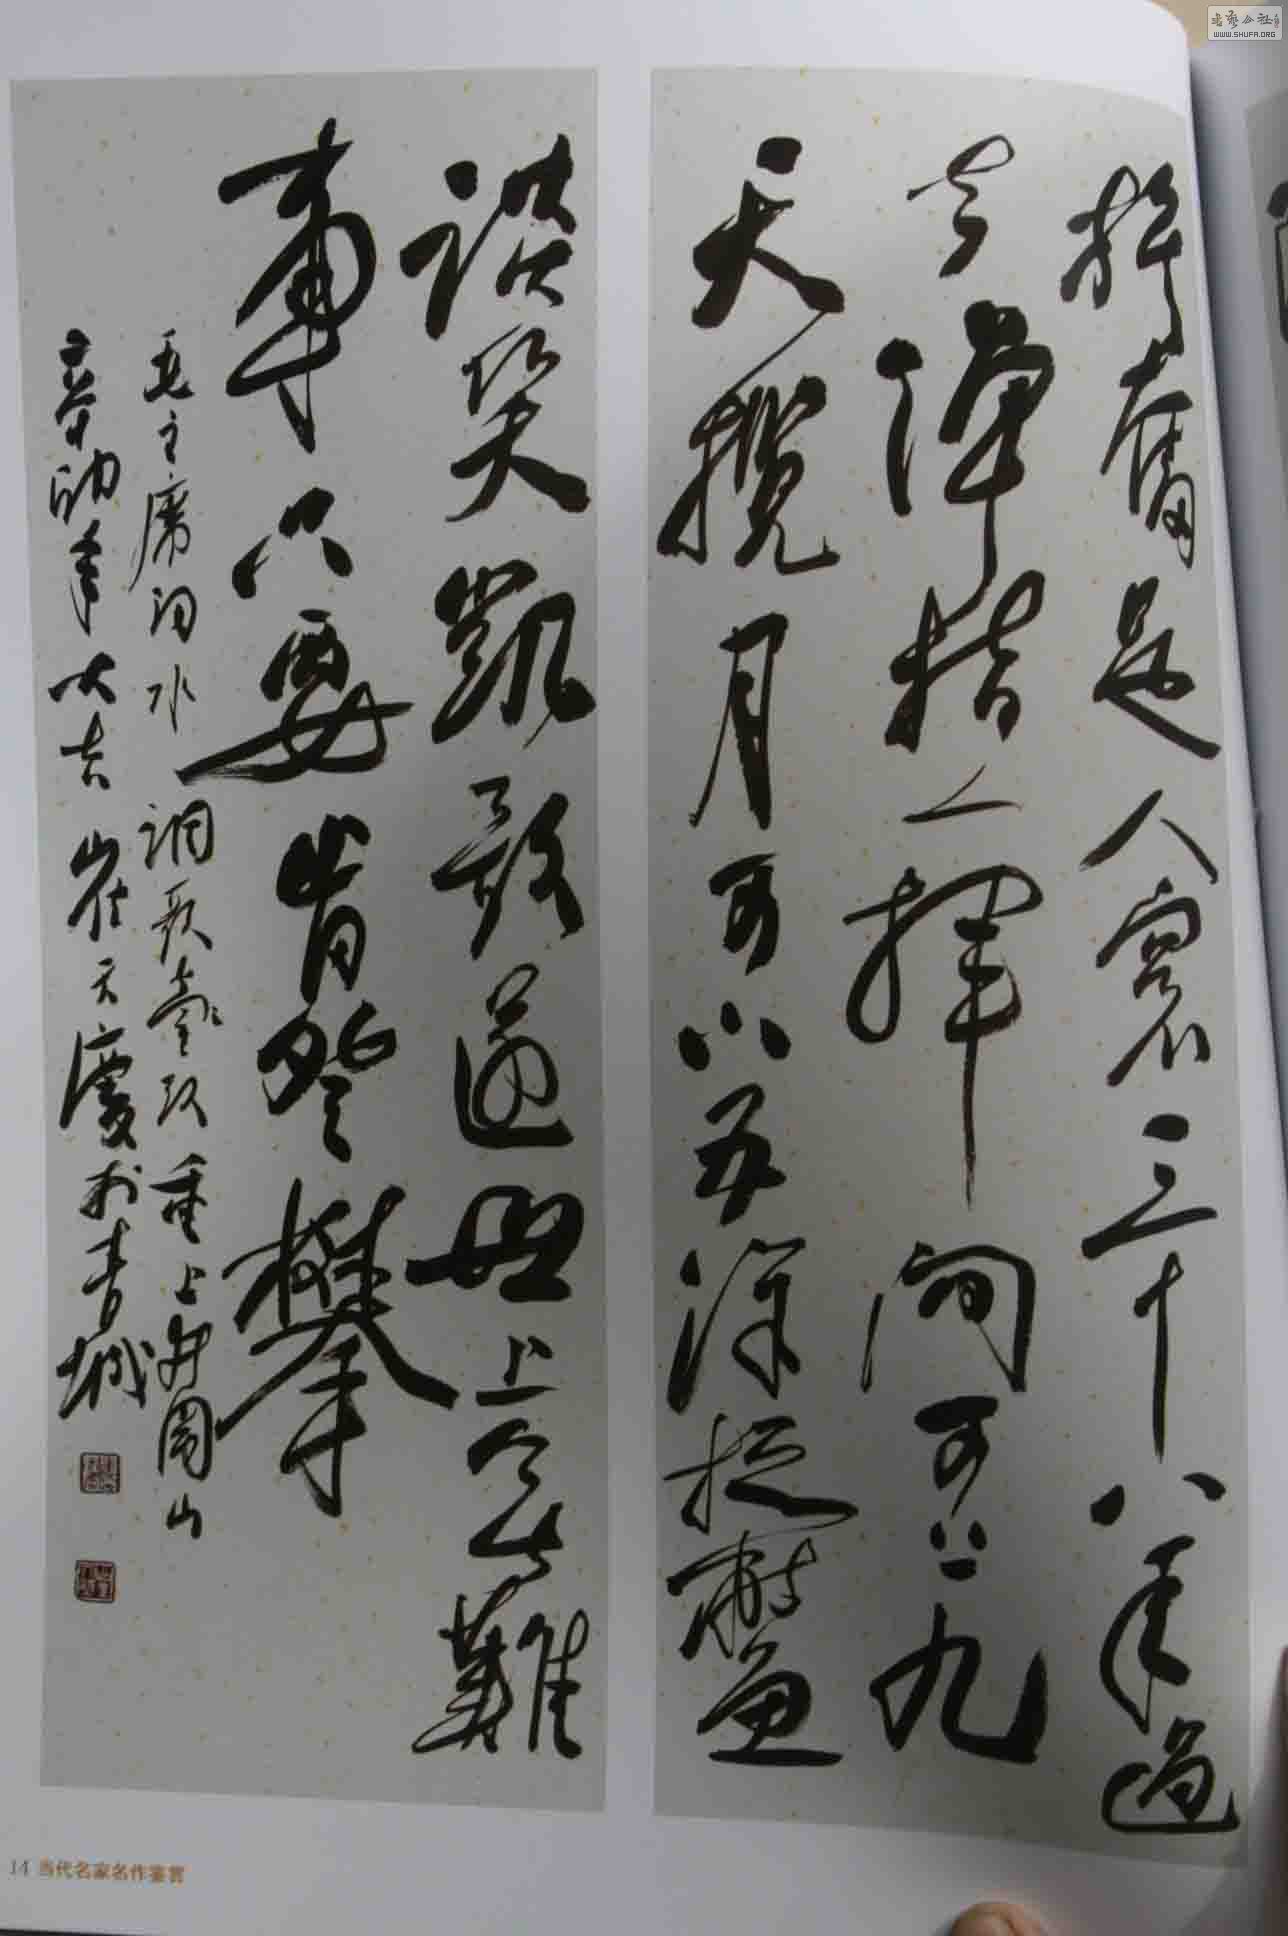 奋是人寰三十八年过
去弹指一挥间可上九
天揽月可下五洋捉鳖
谈笑凯歌还世上无难
事只要肯登攀
毛主席词水调歌头重上井冈山
年大吉崔天庆于青城
14 当代名家名作鉴赏
WWW.SHUFA.ORG